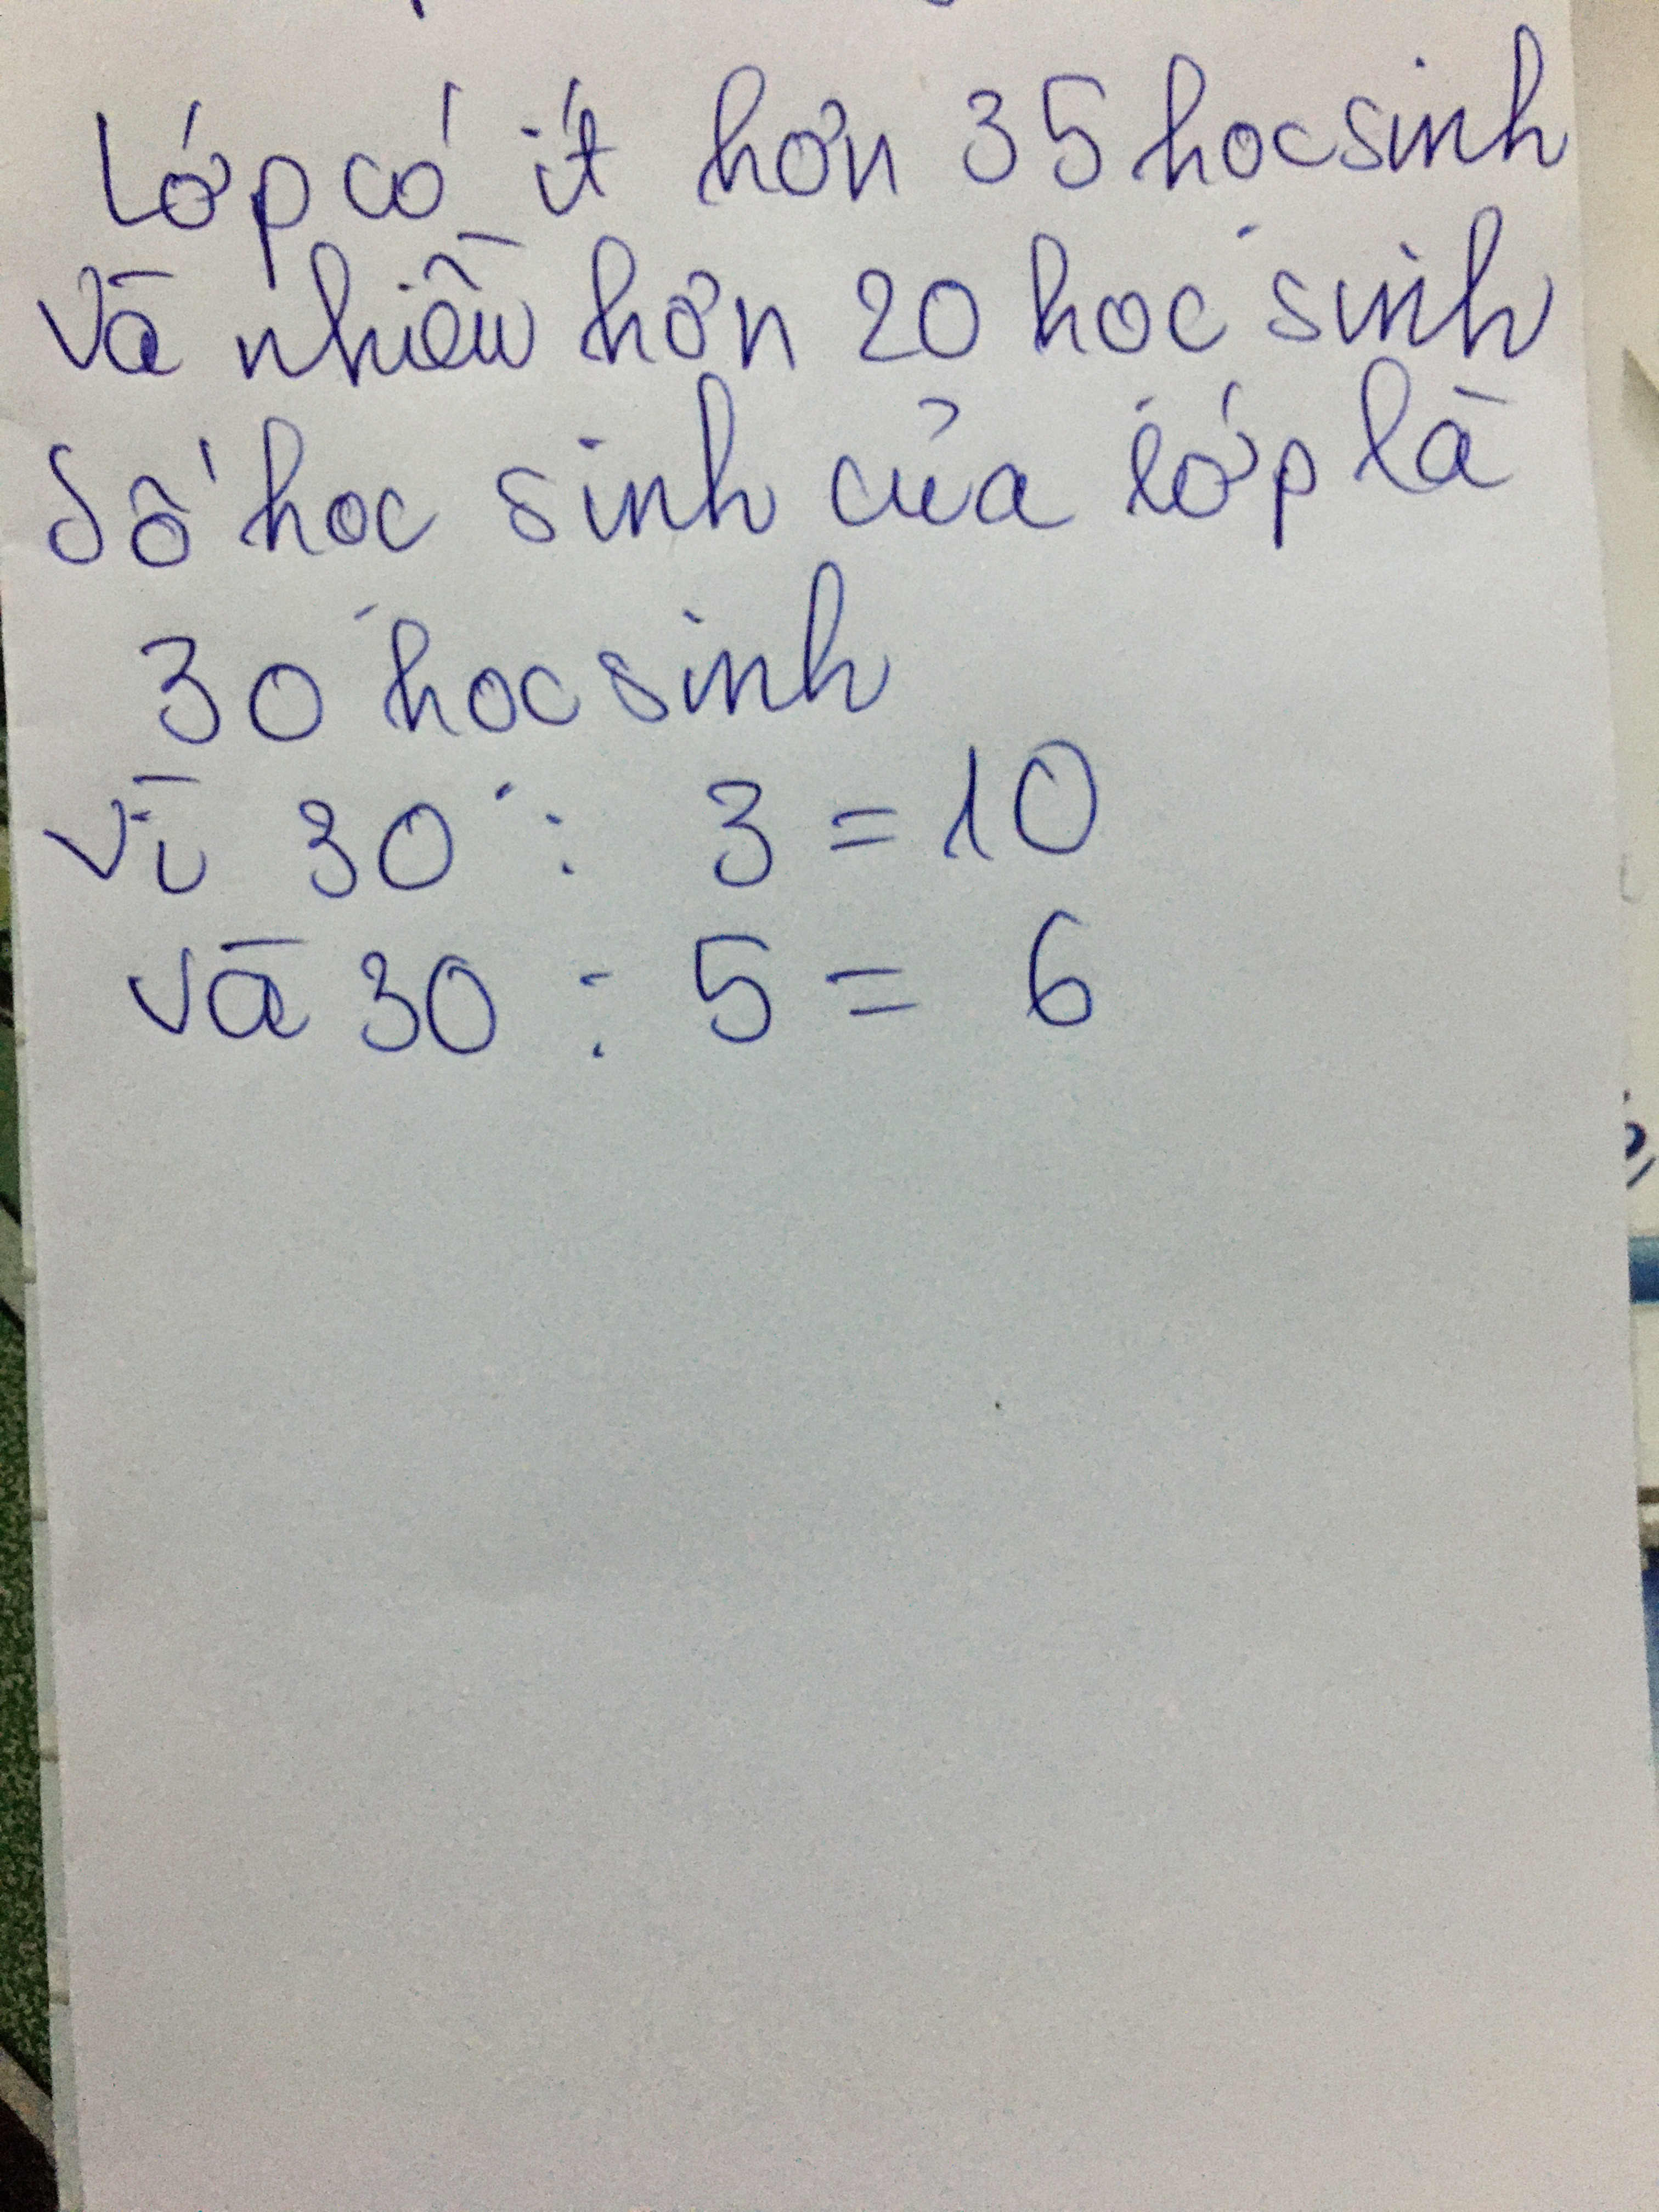 Lớp có ít hơn 35 học sinh
Và nhiều hơn 20 học sinh
Số học sinh của lớp là
30 học sinh
Vì 30 : 3 = 10
Và 30 : 5 = 6